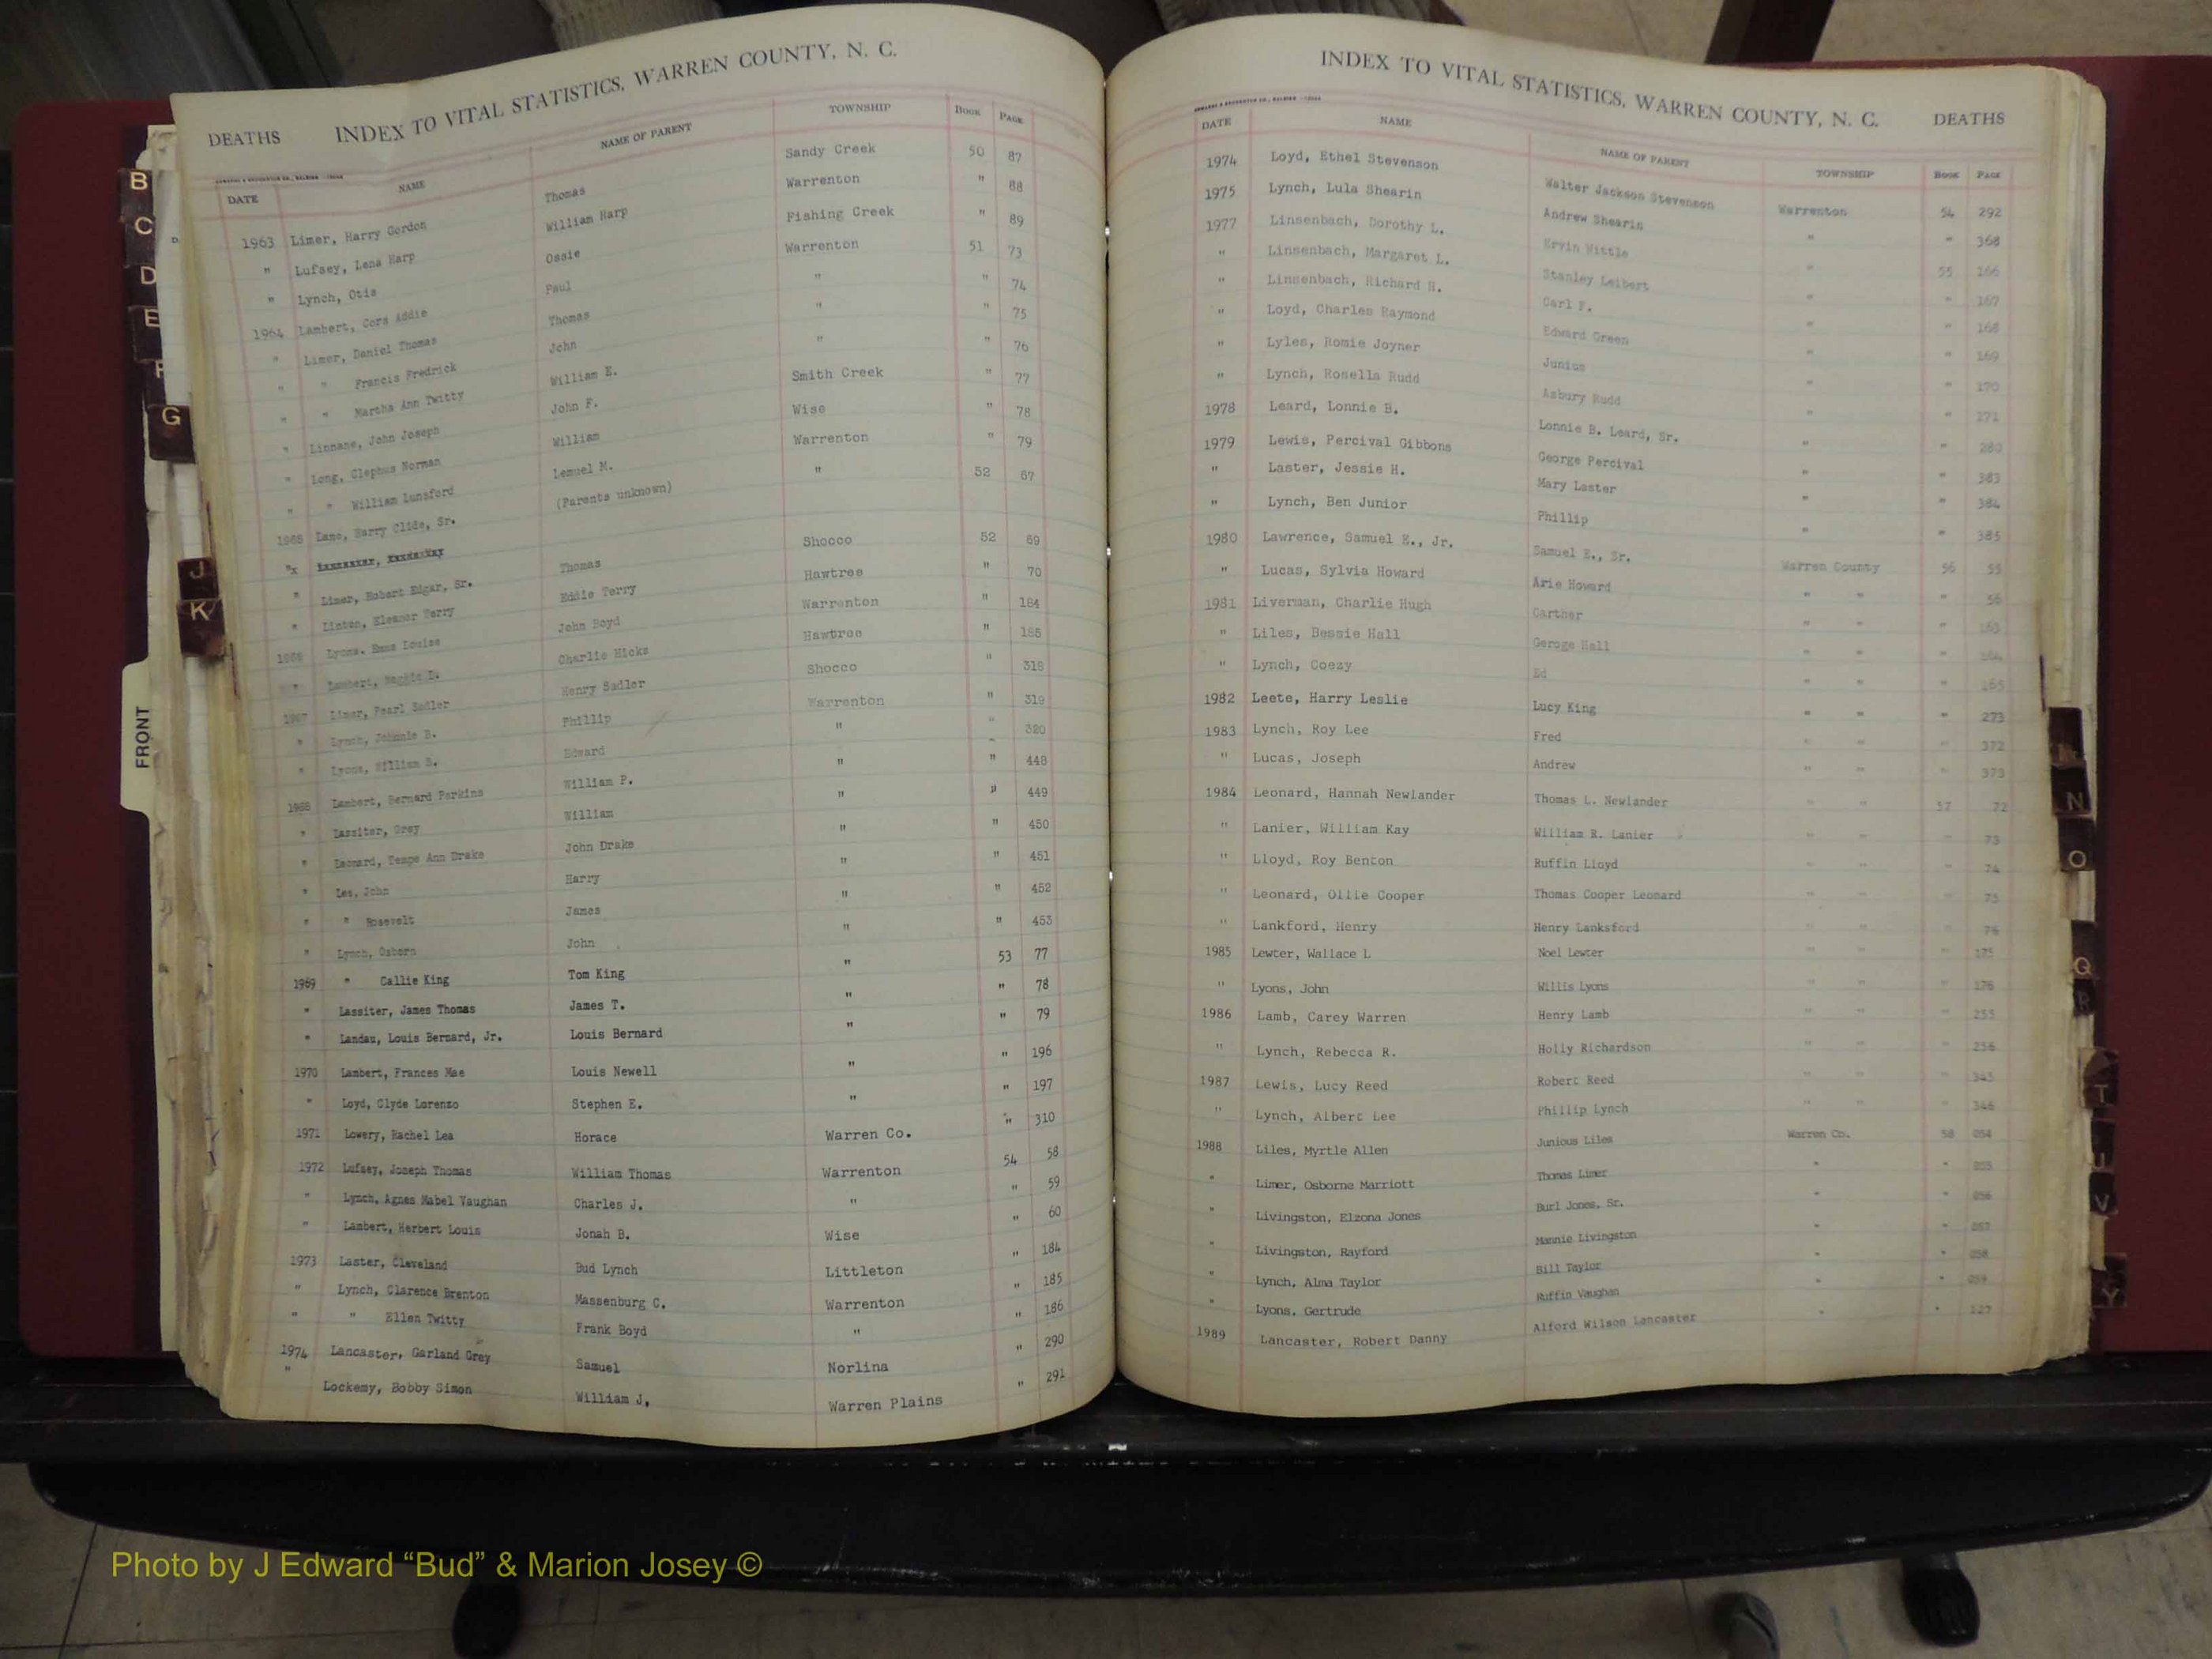 DEATHS INDEX TO VITAL STATISTICS, WARREN COUNTY, N. C.
DATE NAME NAME OF PARENT TOWNSHIP BOOK PAGE
1963 Limer, Harry Gordon Thomas Sandy Creek 50 87
" Lufsey, Lena Harp William Harp Warrenton " 88
" Lynch, Otis Ossie Fishing Creek " 89
1964 Lambert, Cora Addie Paul Warrenton 51 73
" Limer, Daniel Thomas Thomas " " 74
" " Francis Fredrick John " " 75
" " Martha Ann Twitty William E. " " 76
" Linnane, John Joseph John F. Smith Creek " 77
" Long, Clephus Norman William Wise " 78
" " William Lunsford Lemuel M. Warrenton " 79
1965 Lane, Harry Clide, Sr. (Parents unknown) " 52 67
" Limer, Robert Edgar, Sr. Thomas Shocco 52 69
" Linton, Eleanor Terry Eddie Terry Hawtree " 70
1966 Lyons, Emma Louise John Boyd Warrenton " 184
" Lambert, Maggie H. Charlie Hicks Hawtree " 185
1967 Limer, Pearl Sadler Henry Sadler Shocco " 318
" Lynch, Johnnie B. Phillip Warrenton " 319
" Lyons, William S. Edward " " 320
1968 Lambert, Bernard Perkins William P. " " 448
" Lassiter, Grey William " " 449
" Leonard, Tempe Ann Drake John Drake " " 450
" Lee, John Harry " " 451
" " Rosevelt James " " 452
" Lynch, Osborn John " " 453
1969 " Callie King Tom King " 53 77
" Lassiter, James Thomas James T. " " 78
" Landau, Louis Bernard, Jr. Louis Bernard " " 79
1970 Lambert, Frances Mae Louis Newell " " 196
" Loyd, Clyde Lorenzo Stephen E. " " 197
1971 Lowery, Rachel Lea Horace Warren Co. " 310
1972 Lufsey, Joseph Thomas William Thomas Warrenton 54 58
" Lynch, Agnes Mabel Vaughan Charles J. " " 59
" Lambert, Herbert Louis Jonah B. Wise " 60
1973 Laster, Cleveland Bud Lynch Littleton " 184
" Lynch, Clarence Brenton Massenburg C. Warrenton " 185
" " Ellen Twitty Frank Boyd " " 186
1974 Lancaster, Garland Grey Samuel Norlina " 290
" Lockemy, Bobby Simon William J. Warren Plains " 291
INDEX TO VITAL STATISTICS, WARREN COUNTY, N. C. DEATHS
DATE NAME NAME OF PARENT TOWNSHIP BOOK PAGE
1974 Loyd, Ethel Stevenson Walter Jackson Stevenson Warrenton 54 292
1975 Lynch, Lula Shearin Andrew Shearin " " 368
1977 Linsenbach, Dorothy L. Ervin Wittle " 55 166
" Linsenbach, Margaret L. Stanley Leibert " " 167
" Linsenbach, Richard H. Carl F. " " 168
" Loyd, Charles Raymond Edward Green " " 169
" Lyles, Romie Joyner Junius " " 170
" Lynch, Rosella Rudd Asbury Rudd " " 171
1978 Leard, Lonnie B. Lonnie B. Leard, Sr. " " 280
1979 Lewis, Percival Gibbons George Percival " " 383
" Laster, Jessie H. Mary Laster " " 384
" Lynch, Ben Junior Phillip " " 385
1980 Lawrence, Samuel E., Jr. Samuel E., Sr. Warren County 56 55
" Lucas, Sylvia Howard Arie Howard " " " 56
1981 Liverman, Charlie Hugh Carther " " " 163
" Liles, Bessie Hall Geroge Hall " " " 164
" Lynch, Coezy Ed " " " 165
1982 Leete, Harry Leslie Lucy King " " " 273
1983 Lynch, Roy Lee Fred " " " 372
" Lucas, Joseph Andrew " " " 373
1984 Leonard, Hannah Newlander Thomas L. Newlander " " 57 72
" Lanier, William Kay William R. Lanier " " " 73
" Lloyd, Roy Benton Ruffin Lloyd " " " 74
" Leonard, Ollie Cooper Thomas Cooper Leonard " " " 75
" Lankford, Henry Henry Lanksford " " " 76
1985 Lewter, Wallace L Noel Lewter " " " 175
" Lyons, John Willis Lyons " " " 176
1986 Lamb, Carey Warren Henry Lamb " " " 255
" Lynch, Rebecca R. Holly Richardson " " " 256
1987 Lewis, Lucy Reed Robert Reed " " " 345
" Lynch, Albert Lee Phillip Lynch " " " 346
1988 Liles, Myrtle Allen Junious Liles Warren Co. 58 054
" Limer, Osborne Marriott Thomas Limer " " 055
" Livingston, Elzona Jones Burl Jones, Sr. " " 056
" Livingston, Rayford Mannie Livingston " " 057
" Lynch, Alma Taylor Bill Taylor " " 058
" Lyons, Gertrude Ruffin Vaughan " " 059
1989 Lancaster, Robert Danny Alford Wilson Lancaster " " 127
B
C
D
E
F
G
J
K
FRONT
N
O
Q
R
T
U
V
Y
Photo by J Edward “Bud” & Marion Josey ©